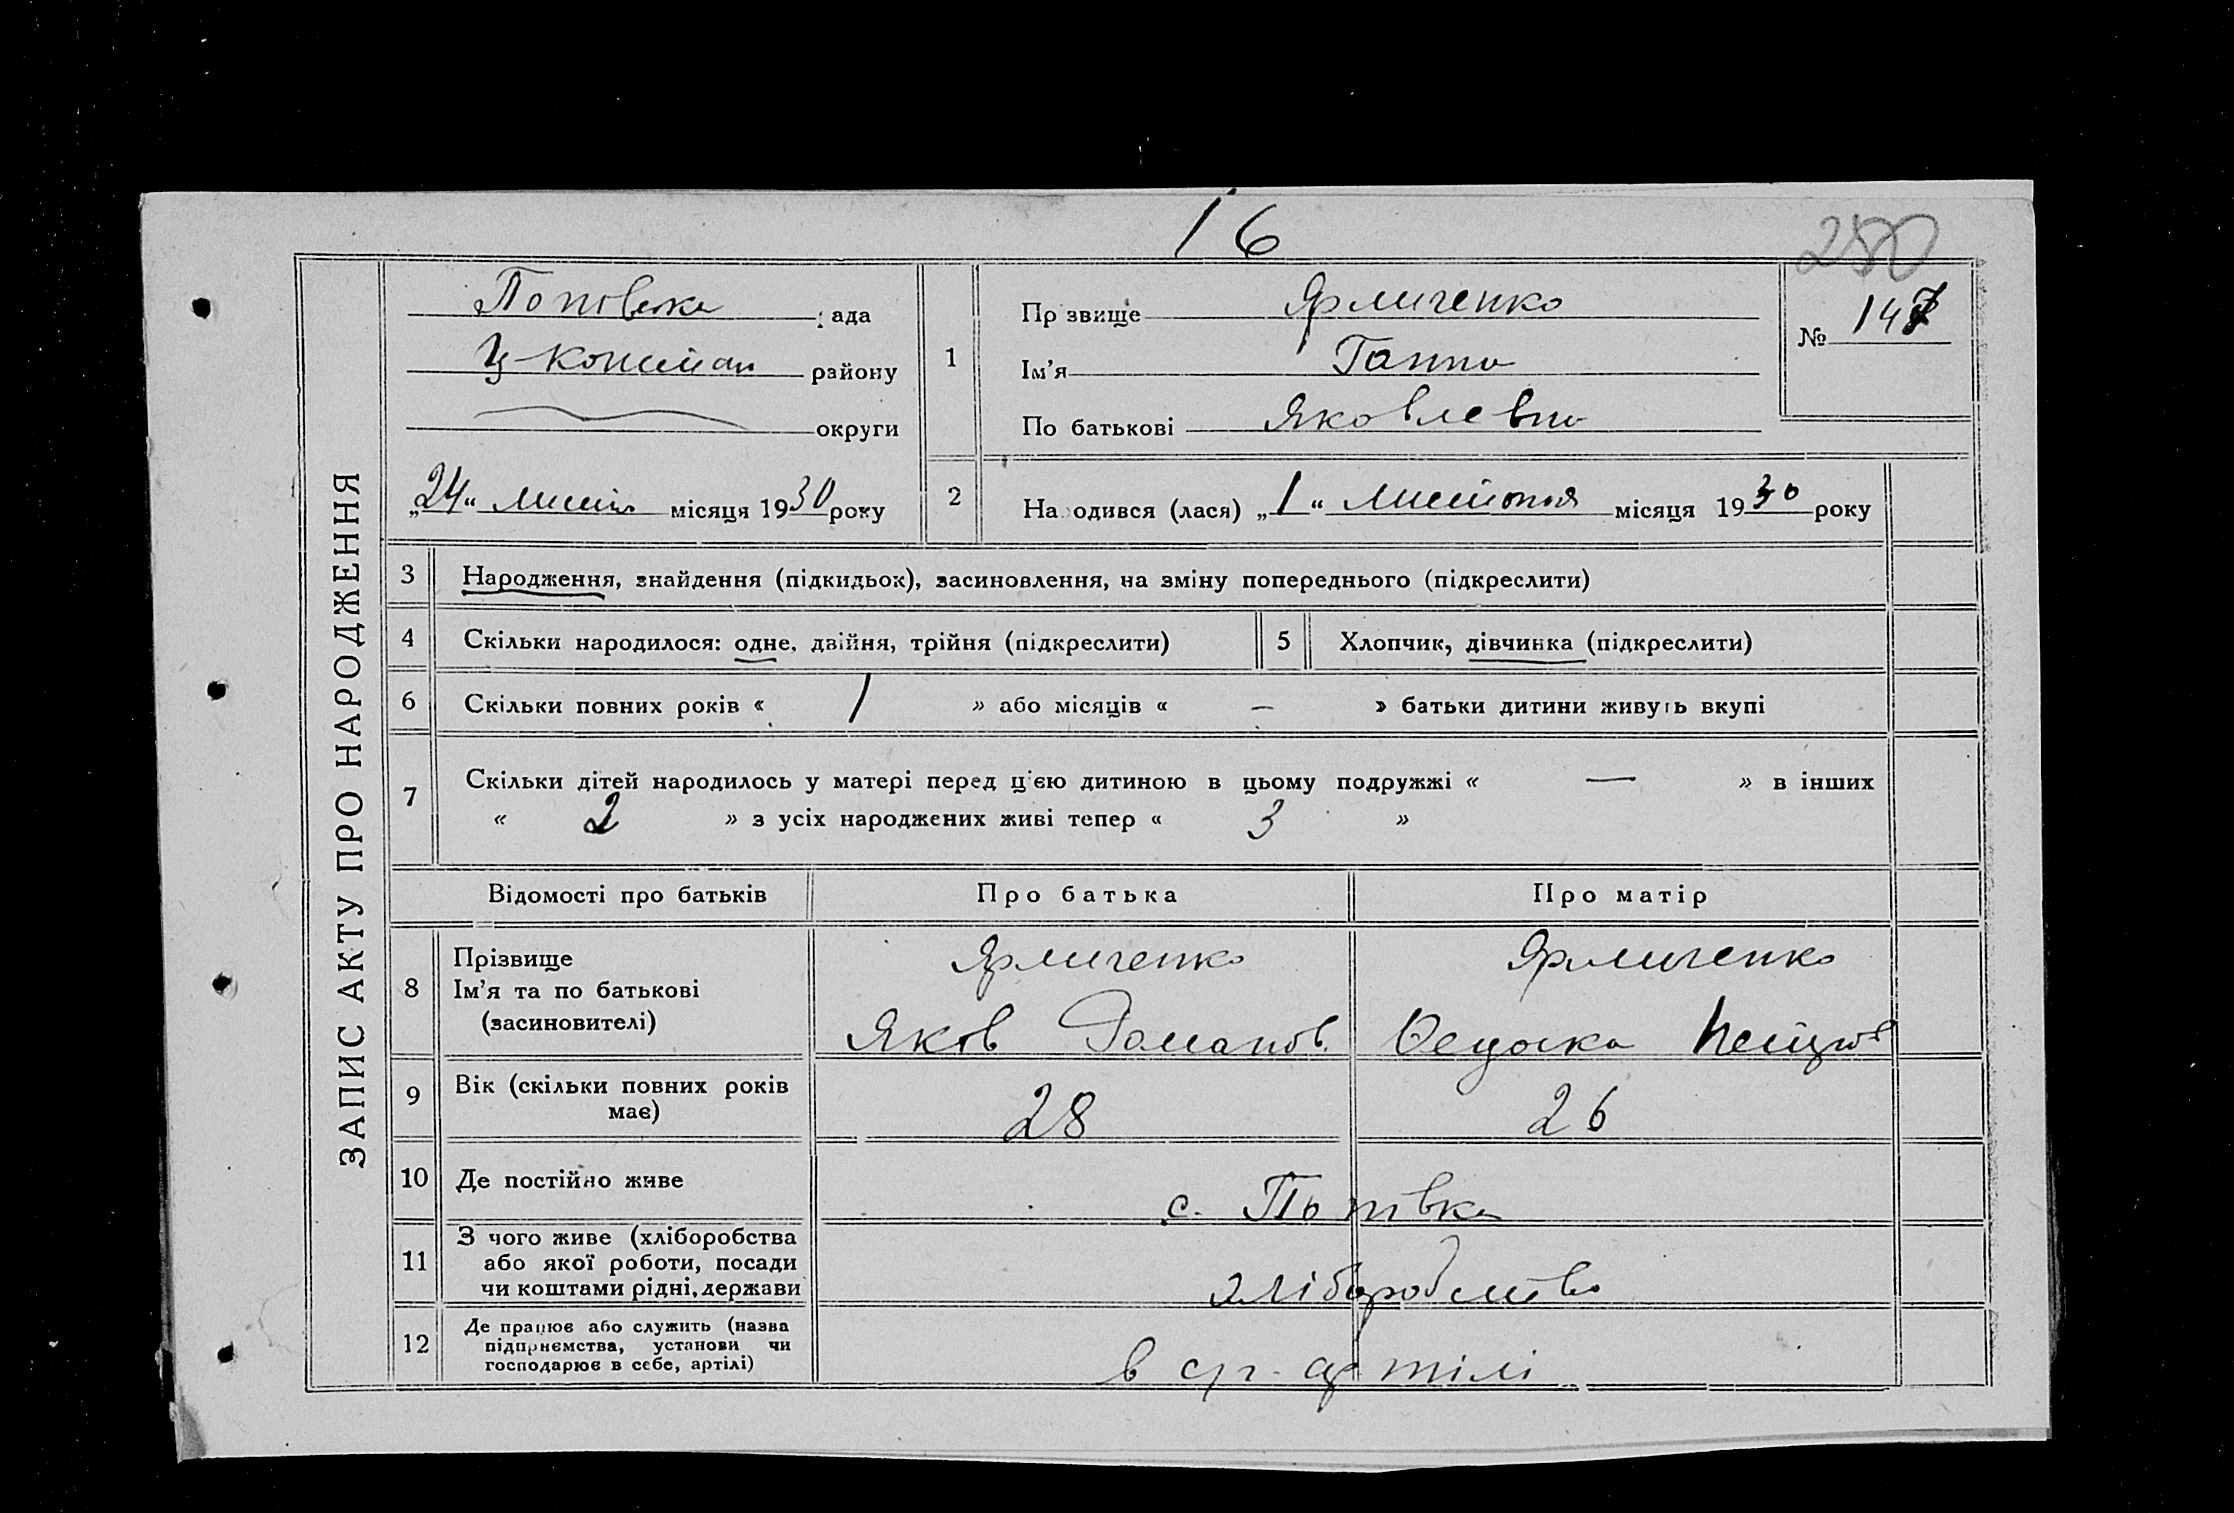 16
280
ЗАПИС АКТУ ПРО НАРОДЖЕННЯ
Поповська рада
району
округи
„24“ листоп місяця 1930 року
1
Прізвище Ярмиченко
Ім’я Ганна
По батькові Яковлевна
№ 147
2
Народився (лася) „1“ листопад місяця 1930 року
3 Народження, знайдення (підкидьок), засиновлення, на зміну попереднього (підкреслити)
4 Скільки народилося: одне, двійня, трійня (підкреслити)
5 Хлопчик, дівчинка (підкреслити)
6 Скільки повних років « 1 » або місяців « — » батьки дитини живуть вкупі
7 Скільки дітей народилось у матері перед ц’єю дитиною в цьому подружжі « — » в інших
« 2 » з усіх народжених живі тепер « 3 »
Відомості про батьків
Про батька
Про матір
8
Прізвище
Ім’я та по батькові
(засиновителі)
Ярмиченко
Яков Романов.
Ярмиченко
9
Вік (скільки повних років
має)
28
26
10 Де постійно живе
с. Попівка
11
З чого живе (хліборобства
або якої роботи, посади
чи коштами рідні, держави
хліборобство
12
Де працює або служить (назва
підприємства, установи чи
господарює в себе, артілі)
в с/г. артілі